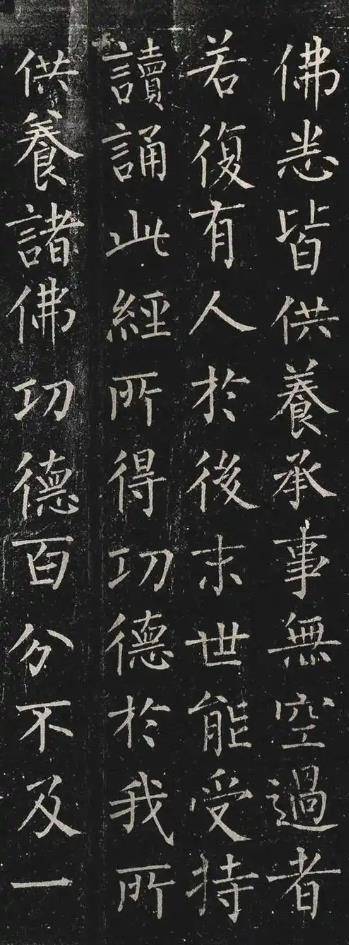 佛悉皆供養承事無空過者
若復有人於後末世能受持
讀誦此經所得功德於我所
供養諸佛功德百分不及一